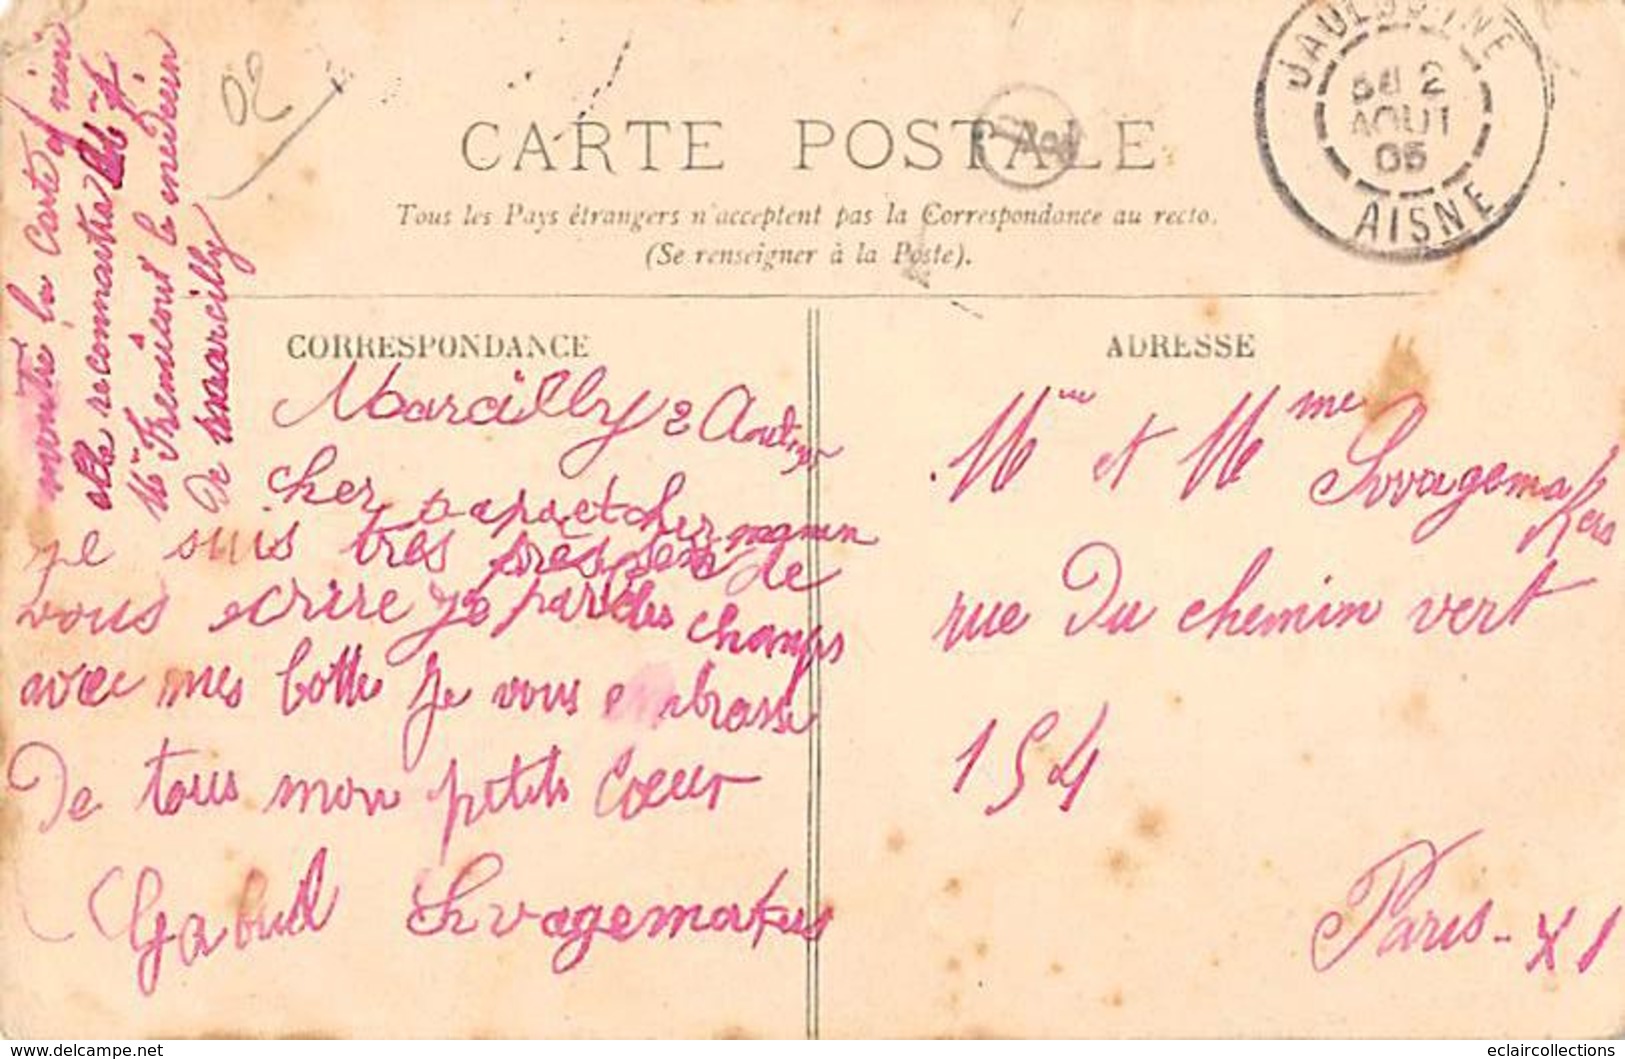 montre la Carte a nini
elle reconnaitra
Mr Tremisout le medecin
De marcilly
02
CARTE POSTALE
Tous les Pays étrangers n'acceptent pas la Correspondance au recto.
(Se renseigner à la Poste).
JAULGONNE
2
AOUT
05
AISNE
CORRESPONDANCE
Marcilly 2 Aout
cher papa et cher maman
je suis tres de
vous ecrire je par les champs
avec mes botte je vous embrasse
De tous mon petits Coeur
Gabriel Schvagemakers
ADRESSE
Mr et Mme
Svvagemakers
rue Du chemin vert
154
Paris - XI
www.delcampe.net
eclaircollections